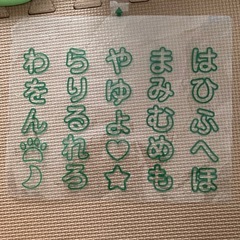 はひふへほ
まみむめも
やゆよ♡☆
らりるれろ
わをん